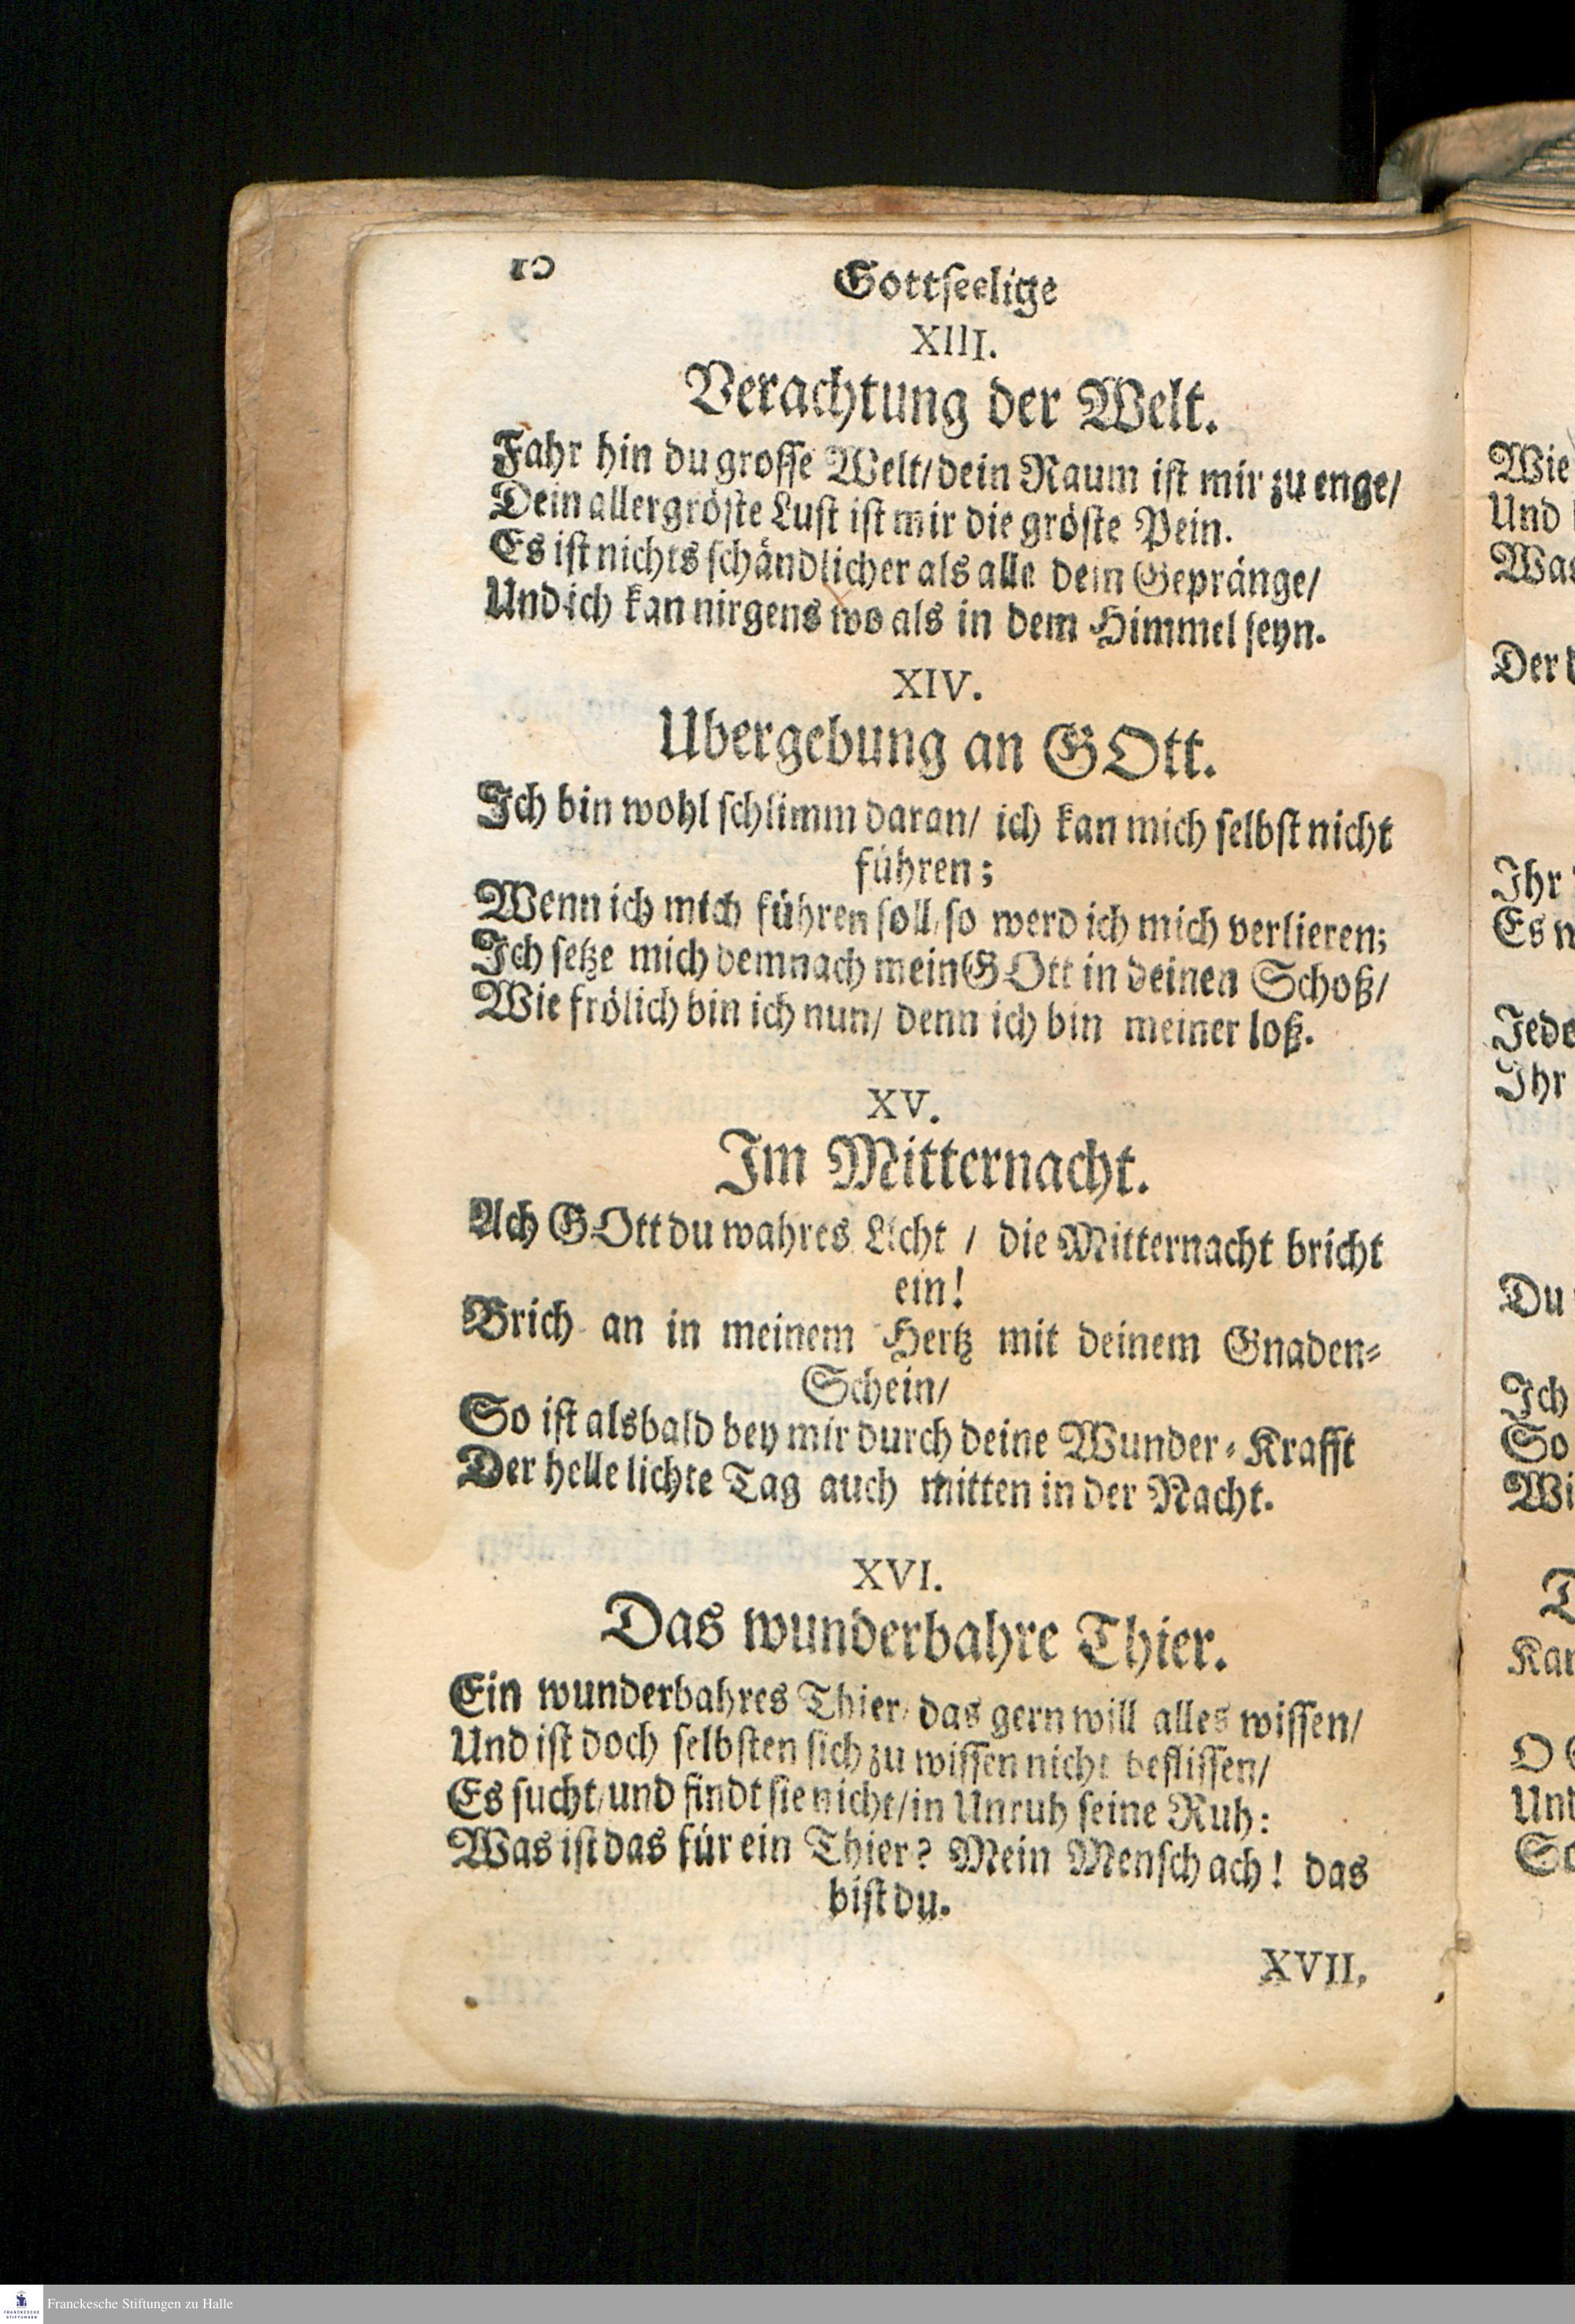 10
Gottseelige
XIII.
Verachtung der Welt.
Fahr hin du grosse Welt/ dein Raum ist mir zu enge/
Dein allergröste Lust ist mir die gröste Pein.
Es ist nichts schändlicher als alle dein Gepränge/
Und ich kan nirgens wo als in dem Himmel seyn.
XIV.
Ubergebung an GOtt.
Ich bin wohl schlimm daran/ ich kan mich selbst nicht
führen;
Wenn ich mich führen soll/ so werd ich mich verlieren;
Ich setze mich demnach mein GOtt in deinen Schoß/
Wie frölich bin ich nun/ denn ich bin meiner loß.
XV.
Im Mitternacht.
Ach GOtt du wahres Licht / die Mitternacht bricht
ein!
Brich an in meinem Hertz mit deinem Gnaden-
Schein/
So ist alsbald bey mir durch deine Wunder-Krafft
Der helle lichte Tag auch mitten in der Nacht.
XVI.
Das wunderbahre Thier.
Ein wunderbahres Thier/ das gern will alles wissen/
Und ist doch selbsten sich zu wissen nicht beflissen/
Es sucht/ und findt sie nicht/ in Unruh seine Ruh:
Was ist das für ein Thier? Mein Mensch ach! das
bist du.
XVII.
Wie
Und
Was
Der
Ihr
Es
Jede
Ihr
Du
Ich
So
Wi
Kan
O
Und
So
FRANCKESCHE STIFTUNGEN
Franckesche Stiftungen zu Halle